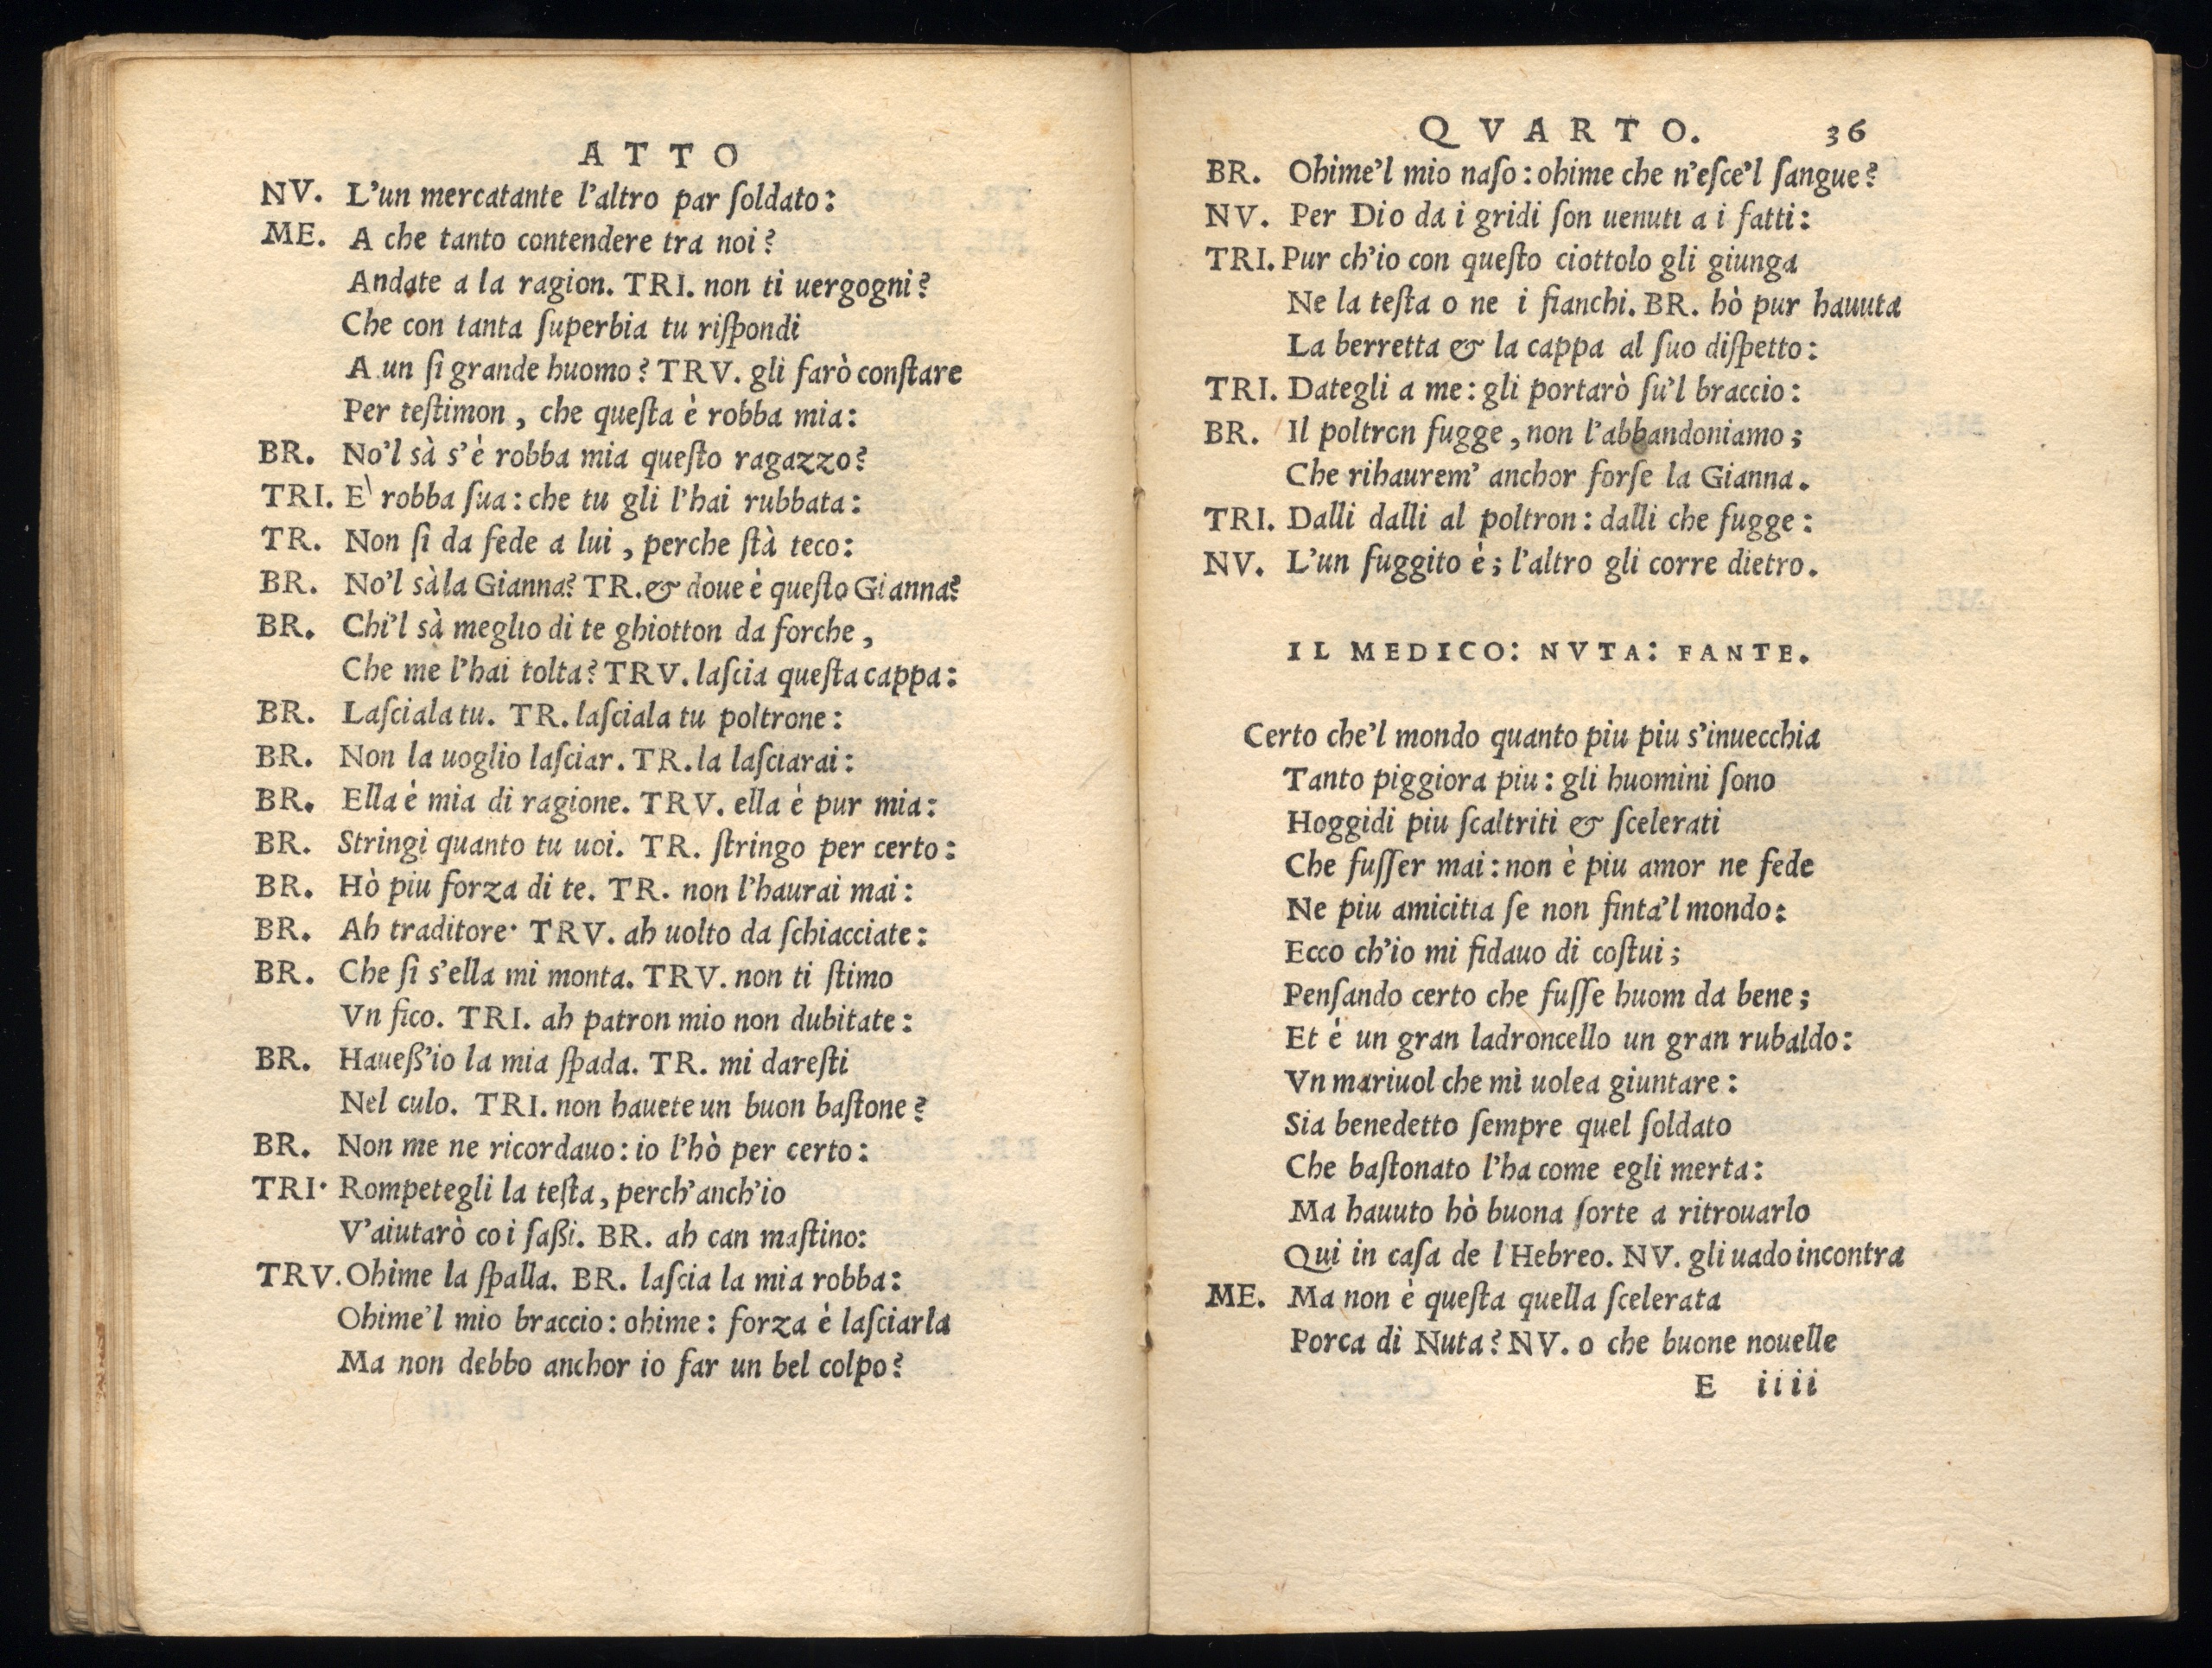 ATTO
NV. L'un mercatante l'altro par ſoldato:
ME. A che tanto contendere tra noi?
Andate a la ragion. TRI. non ti uergogni?
Che con tanta ſuperbia tu riſpondi
A un ſi grande huomo? TRV. gli farò conſtare
Per teſtimon, che queſta è robba mia:
BR. No'l sà s'è robba mia queſto ragazzo?
TRI. E` robba ſua: che tu gli l'hai rubbata:
TR. Non ſi da fede a lui, perche ſtà teco:
BR. No'l sà la Gianna? TR. & doue è queſto Gianna?
BR. Chi'l sà meglio di te ghiotton da forche,
Che me l'hai tolta? TRV. laſcia queſta cappa:
BR. Laſciala tu. TR. laſciala tu poltrone:
BR. Non la uoglio laſciar. TR. la laſciarai:
BR. Ella é mia di ragione. TRV. ella è pur mia:
BR. Stringi quanto tu uoi. TR. ſtringo per certo:
BR. Hò piu forza di te. TR. non l'haurai mai:
BR. Ah traditore· TRV. ah uolto da ſchiacciate:
BR. Che ſi s'ella mi monta. TRV. non ti ſtimo
Vn fico. TRI. ah patron mio non dubitate:
BR. Haueß'io la mia ſpada. TR. mi dareſti
Nel culo. TRI. non hauete un buon baſtone?
BR. Non me ne ricordauo: io l'hò per certo:
TRI· Rompetegli la teſta, perch'anch'io
V'aiutarò co i ſaßi. BR. ah can maſtino:
TRV. Ohime la ſpalla. BR. laſcia la mia robba:
Ohime'l mio braccio: ohime: forza è laſciarla
Ma non debbo anchor io far un bel colpo?
QVARTO. 36
BR. Ohime'l mio naſo: ohime che n'eſce'l ſangue?
NV. Per Dio da i gridi ſon uenuti a i fatti:
TRI. Pur ch'io con queſto ciottolo gli giunga
Ne la teſta o ne i fianchi. BR. hò pur hauuta
La berretta & la cappa al ſuo diſpetto:
TRI. Dategli a me: gli portarò ſu'l braccio:
BR. Il poltron fugge, non l'abbandoniamo;
Che rihaurem' anchor forſe la Gianna.
TRI. Dalli dalli al poltron: dalli che fugge:
NV. L'un fuggito è; l'altro gli corre dietro.
IL MEDICO: NVTA: FANTE.
Certo che'l mondo quanto piu piu s'inuecchia
Tanto piggiora piu: gli huomini ſono
Hoggidi piu ſcaltriti & ſcelerati
Che fuſſer mai: non è piu amor ne fede
Ne piu amicitia ſe non finta'l mondo:
Ecco ch'io mi fidauo di coſtui;
Penſando certo che fuſſe huom da bene;
Et è un gran ladroncello un gran rubaldo:
Vn mariuol che mì uolea giuntare:
Sia benedetto ſempre quel ſoldato
Che baſtonato l'ha come egli merta:
Ma hauuto hò buona ſorte a ritrouarlo
Qui in caſa de l'Hebreo. NV. gli uado incontra
ME. Ma non è queſta quella ſcelerata
Porca di Nuta? NV. o che buone nouelle
E iiii